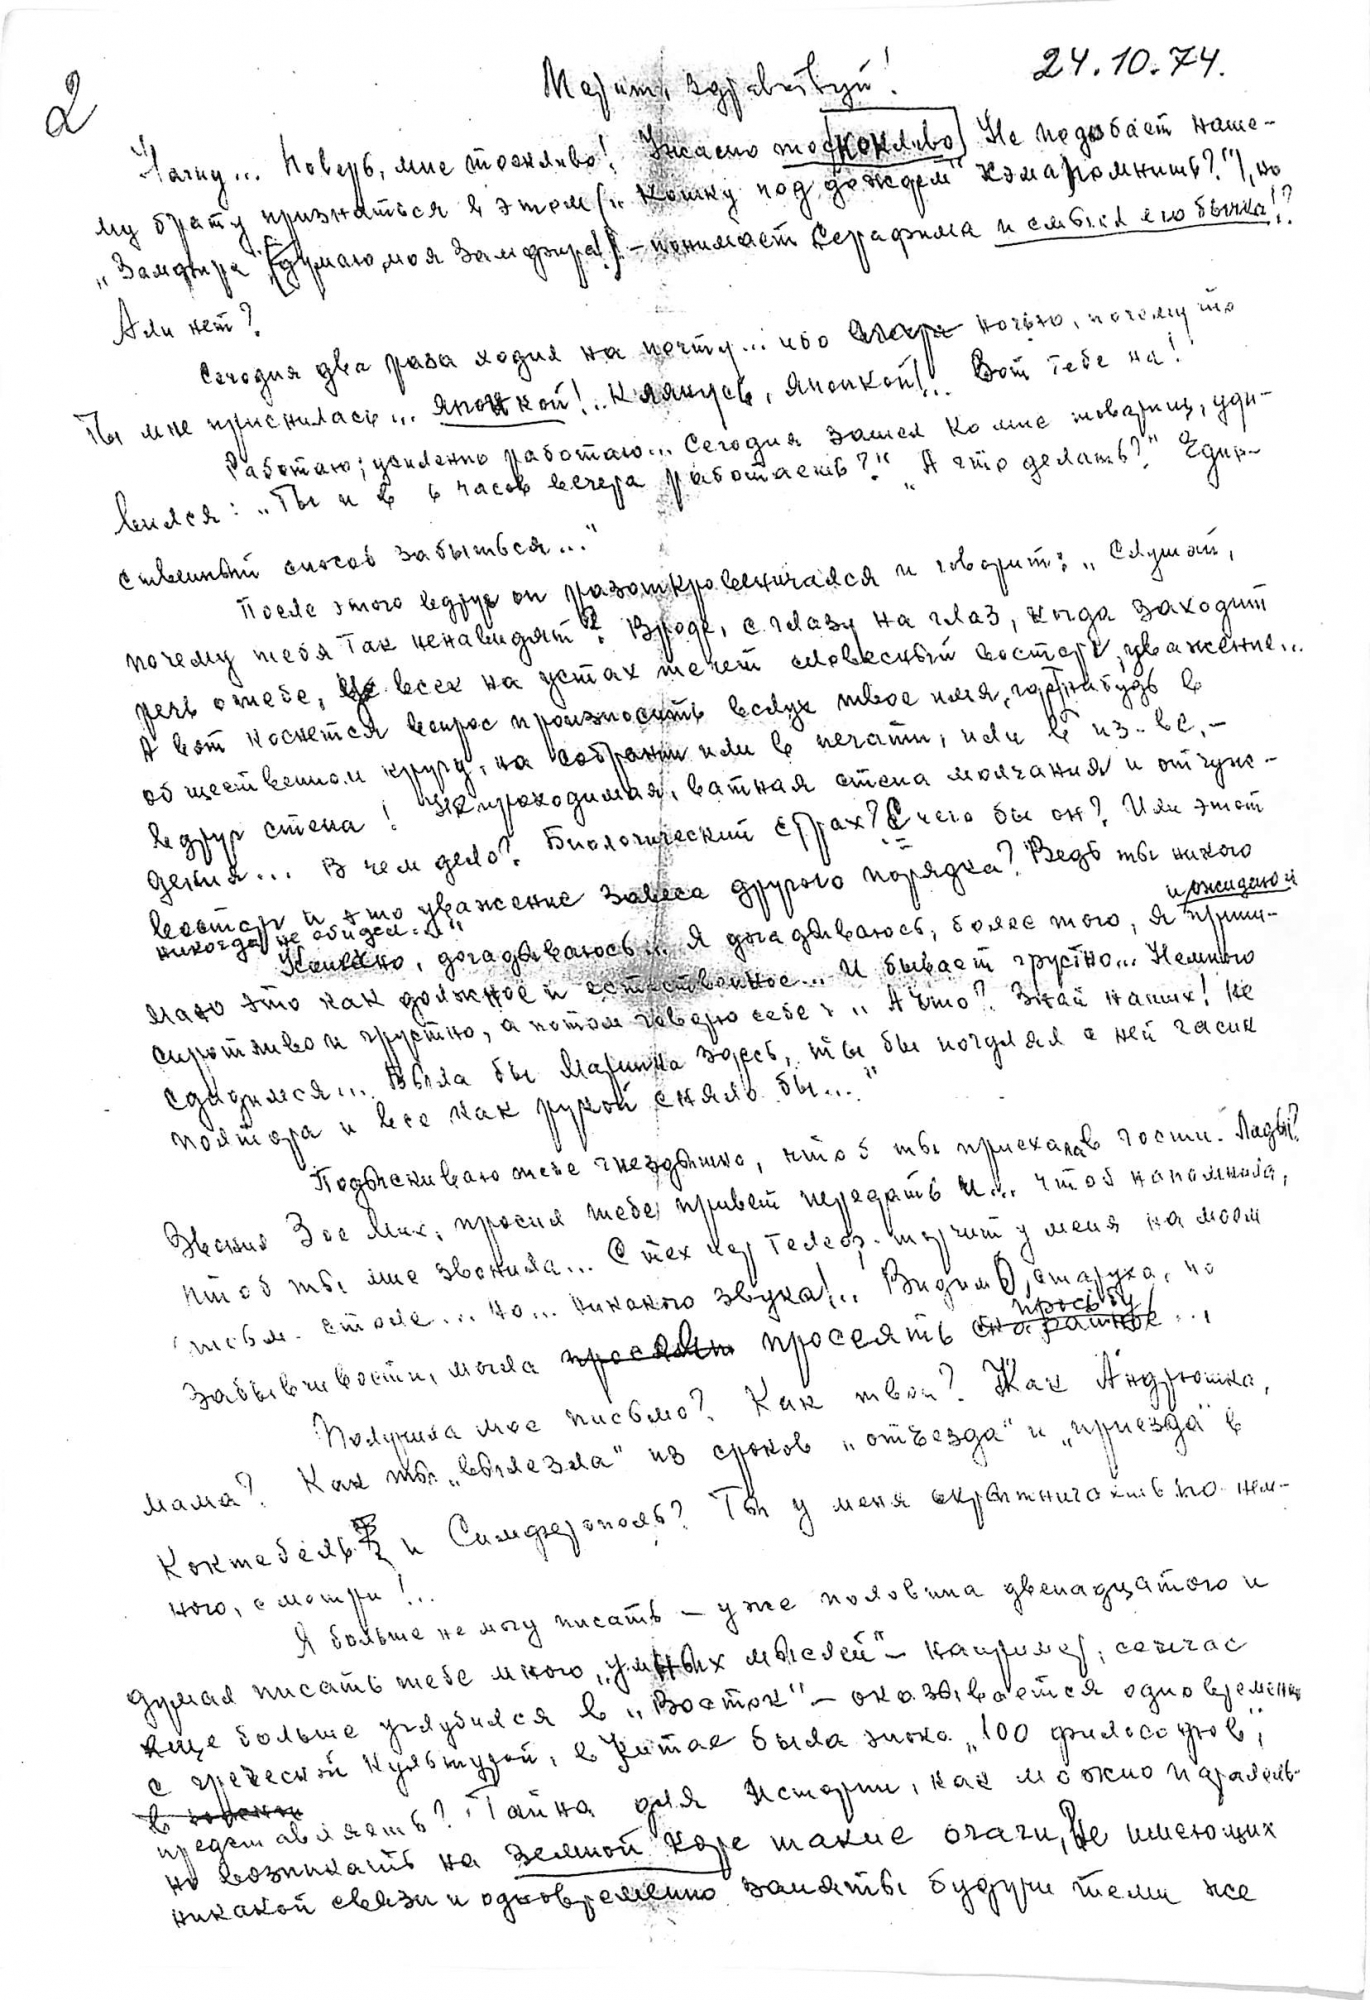 2
24.10.74.
Марит, здравствуй!
Начну... Поверь, мне тоскливо! Ужасно тоскокливо Не подобает наше-
му брату признаться в этом („Кошку под дождем" Хэма помнишь?"), но
„Замфира" (думаю, моя Замфира!) – понимает Серафима и смысл его бычка!?
Али нет?
Сегодня два раза ходил на почту... ибо ночью, почему-то
Ты мне приснилась... японкой!.. Клянусь, японкой!.. Вот тебе на!
Работаю; усиленно работаю... Сегодня зашел ко мне товарищ, уди-
вился: „Ты и в 6 часов вечера работаешь?" „А что делать?" Един-
ственный способ забыться..."
После этого вдруг он разоткровенничался и говорит: „Слушай,
почему тебя так ненавидят? Вроде, с глазу на глаз, когда заходит
речь о тебе, у всех на устах течет словесный восторг, уважение...
А вот коснется вопрос произносить вслух твое имя, где-нибудь в
общественном кругу, на собрании или в печати, или в из-ве, –
вдруг стена! Непроходимая, ватная стена молчания и отчуж-
дения... В чем дело? Биологический страх? С чего бы он? Или этот
восторг и это уважение завеса другого порядка? Ведь ты никого
никогда не обидел..."
Конечно, догадываюсь... Я догадываюсь, более того, я прини-
и ожидаю и
маю это как должное и естественное... И бывает грустно... Немного
сиротливо и грустно, а потом говорю себе: „А что? Знай наших! Не
сдадимся... Была бы Маришка здесь, ты бы погулял с ней часик
полтора и все как рукой сняло бы..."
Подыскиваю тебе гнездышко, чтоб ты приехала в гости. Лады?
Звонил Зое Мих, просил тебе привет передать и... чтоб напомнила,
чтоб ты мне звонила... С тех пор телеф. торчит у меня на моем
письм. столе... но... никакого звука!... Видимо, старуха, по
забывчивости, могла просеять просьбу...,
Получила мое письмо? Как твои? Как Андрюшка,
мама? Как ты „вылезла" из сроков „отъезда" и „приезда" в
Коктебель и Симферополь? Ты у меня скрытничаешь по-нем-
ного, смотри!..
Я больше не могу писать – уже половина двенадцатого и
думал писать тебе много „умных мыслей" – например, сейчас
еще больше углубился в „Восток" – оказывается одновременно
с греческой культурой, в Китае была эпоха „100 философов",
представляешь? Тайна для Истории, как можно паралель-
но возникать на земной коре такие очаги, не имеющих
никакой связи и одновременно заняты будучи теми же